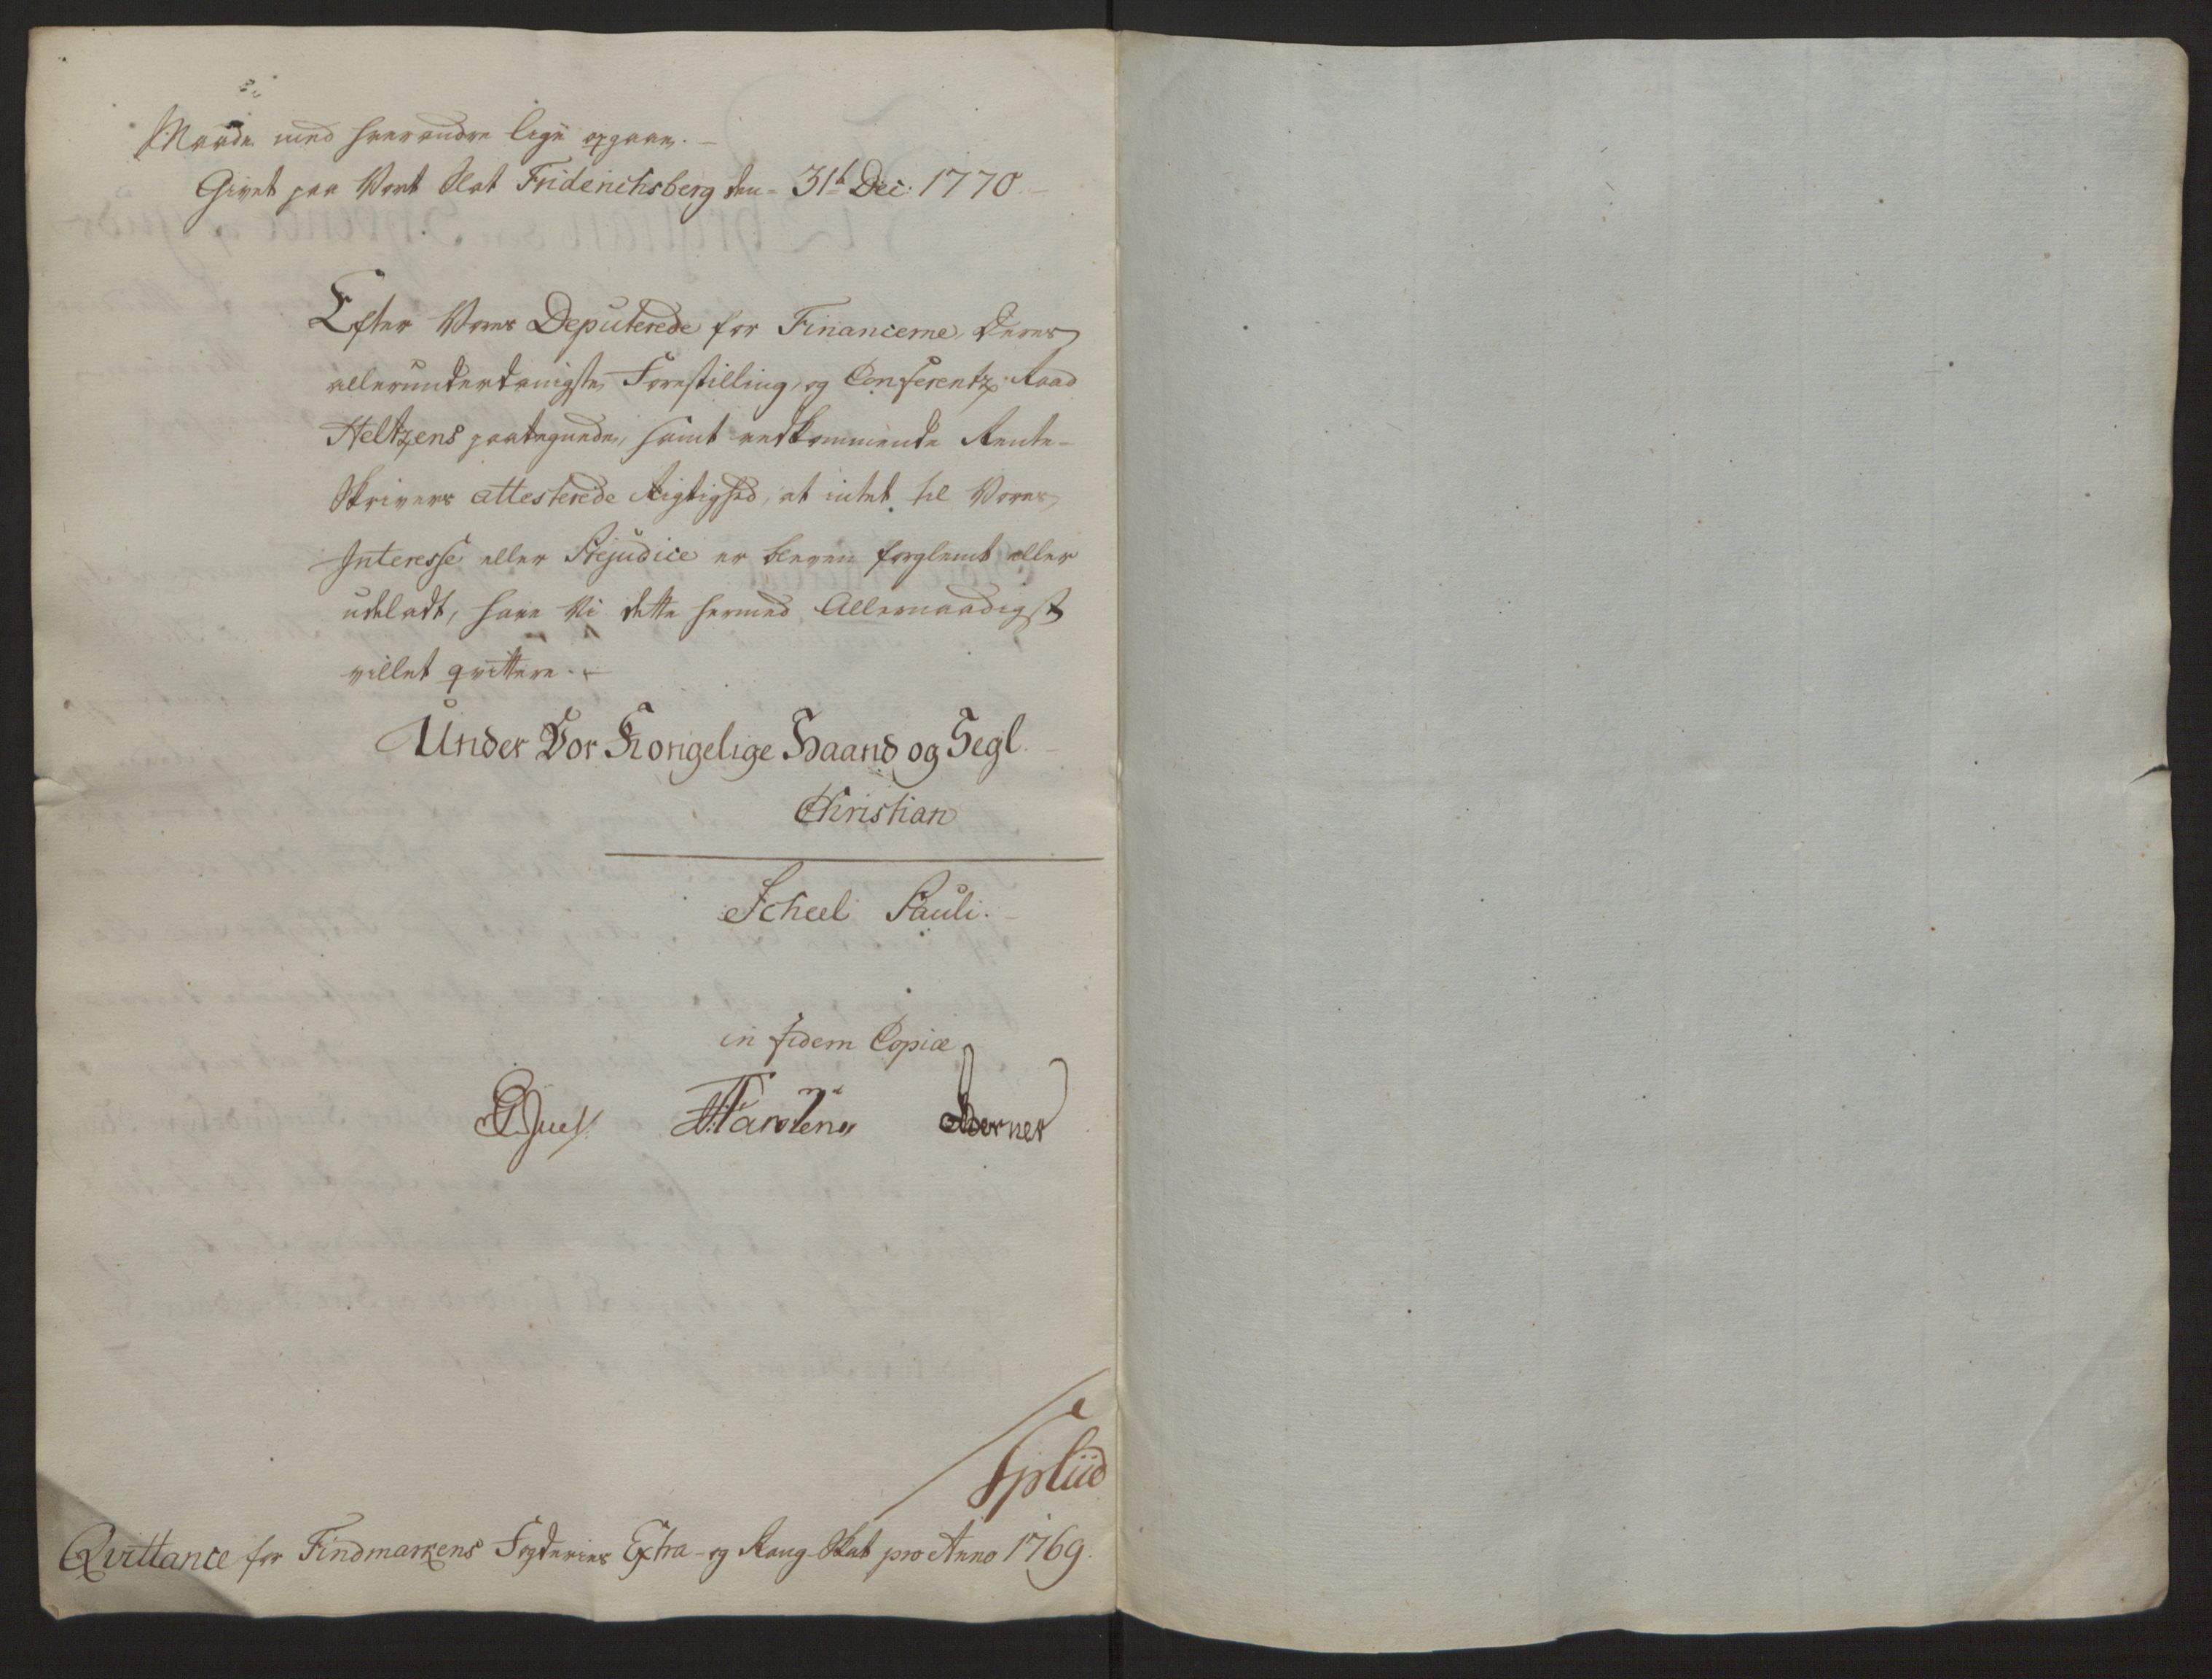 Maade med hverandre lige opgaae.
Givet paa Vort Slot Friderichsberg den 31t Dec: 1770
Efter Vores Deputerede for Financerne, Deres
allerunderdanigste Forestilling, og Conferentz-Raad
Heltzens paategnede, samt vedkommende Rente-
Skrivers attesterede Rigtighed, at intet til Vores
Interesse eller Prejudice er bleven forglemt eller
udeladt, have Vi dette hermed Allernaadigst
villet qvittere.
Under Vor Kongelige Haand og Segl.
Christian
Scheel Pauli.
in fidem Copiæ
Juel Berner
Qvittance for Findmarkens Fogderies Extra- og Rang-Skat pro Anno 1769.